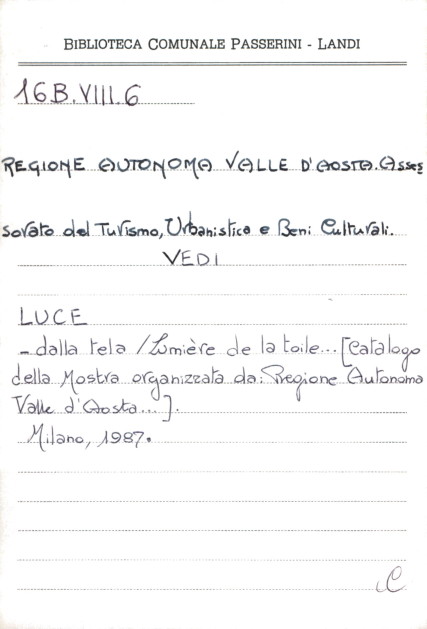 BIBLIOTECA COMUNALE PASSERINI - LANDI
16B.VIII.6
REGIONE AUTONOMA VALLE D'AOSTA. Asses
sorato del Turismo, Urbanistica e Beni Culturali.
VEDI
LUCE
- dalla tela / Lumière de la toile... [Catalogo
della Mostra organizzata da: Regione Autonoma
Valle d'Aosta...].
Milano, 1987.
C